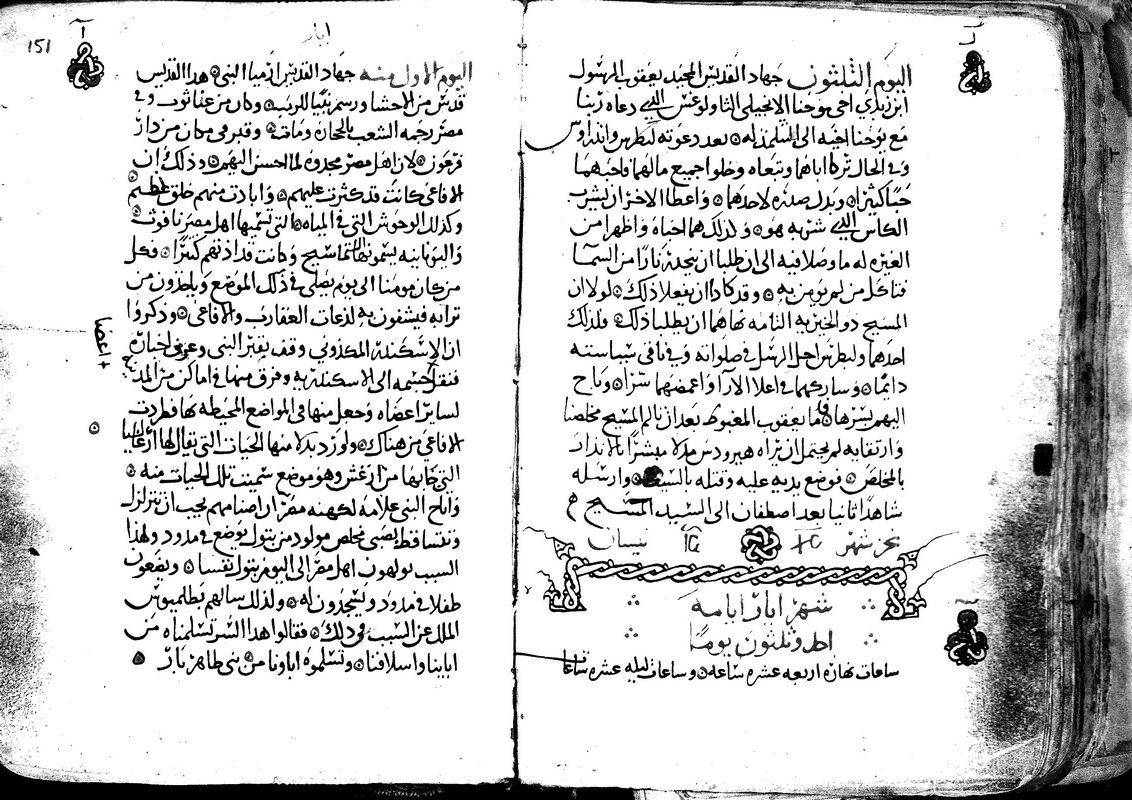 اليوم الثلثون جهاد القديس المجيد يعقوب الرسول
ابن زبدي اخي يوحنا الانجيلي الثاولوغس الذي دعاه ربنا
مع يوحنا اخيه الى التلمذ له بعد دعوته لبطرس واندراوس
وفي الحال تركا اباهما وتبعاه وخلوا جميع مالهما فاحبهما
حبًا كثيرًا وبدل صدره لاحدهما واعطا الاخر ان يشرب
الكاس الذي شربه هو ولذلك هما احباه واظهرا من
الغيره له ما وصلا فيه الى ان طلبا ان ينحدر نارًا من السما
فتاكل من لم يومن به وقد كادا ان يفعلا ذلك لولا ان
المسيح ذو الخيريه التامه نهاهما ان يطلبا ذلك فلذلك
احدهما ولبطرس اجل الرسل في صلواته وفي باقي سياسته
دايمًا وساركهما في اعلا الارا واغمضهما سرًا وباح
اليهم بسرها فاما يعقوب المغبوط بعد ان تالم المسيح مخلصنا
وارتقايه لم يحتمل ان يراه هيرودس مدلا مبشرًا بالاندار
بالمخلص فوضع يديه عليه وقتله بالسيف وارسله
شاهدًا ثانيا بعد اصطفان الى السيد المسيح
نجز شهر نيسان
شهر ايار ايامه
احد وثلثون يومًا
ساعات نهاره اربعه عشره ساعه وساعات ليله عشره ساعات
151
ايار
اليوم الاول منه جهاد القديس ارميا النبي هدا القديس
قدس من الاحشا ورسم نبيًا للرب وكان من عناثوث وفي
مصر رجمه الشعب بالحجاره ومات وقبر في مكان من دار
فرعون لان اهل مصر مجدوه لما احسن اليهم وذلك ان
الافاعي كانت قد كثرت عليهم وابادت منهم خلق عظيم
وكذلك الوحوش التي في المياه التي تسميها اهل مصر نافوث
واليونانيه يسمونها التماسيح وكانت قد اذتهم كثيرًا فكل
من كان مومنا الى يوم يصلي في ذلك الموضع وياخذون من
ترابه فيشفون به لذعات العقارب والافاعي وذكروا
ان الاسكندر المكدوني وقف بقبر النبي وعرف اخباره
فنقل جسمه الى الاسكندريه وفرق منها في اماكن من المدينه
+ اعضا
لساير اعضاه وجعل منها في المواضع المحيطه بها فطردت
الافاعي من هناك واورد بدلا منها الحيات التي يقال لها ارغاليا
التي جابها من ارغش وهو موضع سميت تلك الحيات منه
واباح النبي علامه لكهنه مصر ان اصنامهم يجب ان تتزلزل
وتتساقط بصبي مخلص مولود من بتول يوضع في مدود ولهذا
السبب يولهون اهل مصر الى اليوم بتول نفسا ويضعون
طفلا في مدود ويسجدون له ولذلك سالهم بطلميوس
الملك عن السبب في ذلك فقالوا هدا السر تسلمناه من
ابايتنا واسلافنا وتسلموه اباونا من نبي طاهر بار